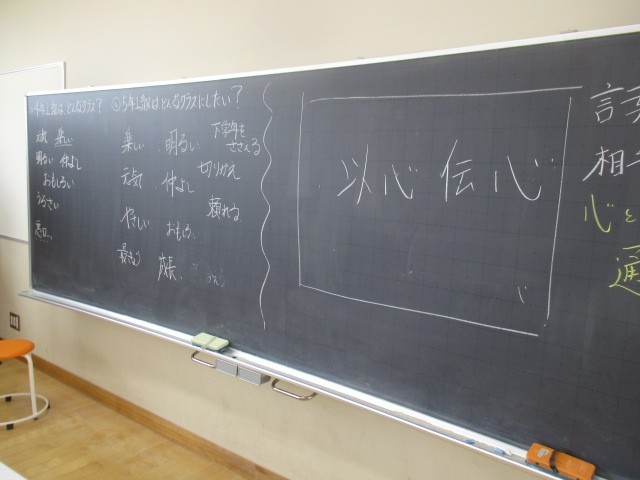 4年1組は、どんなクラス？
元気 楽しい
明るい 仲よし
おもしろい
うるさい
②5年1組はどんなクラスにしたい？
楽しい 明るい 下学年をささえる
元気 仲よし 切りかえ
やさしい おもしろい 頼れる
成長
以心伝心
言葉
相手
心と
通